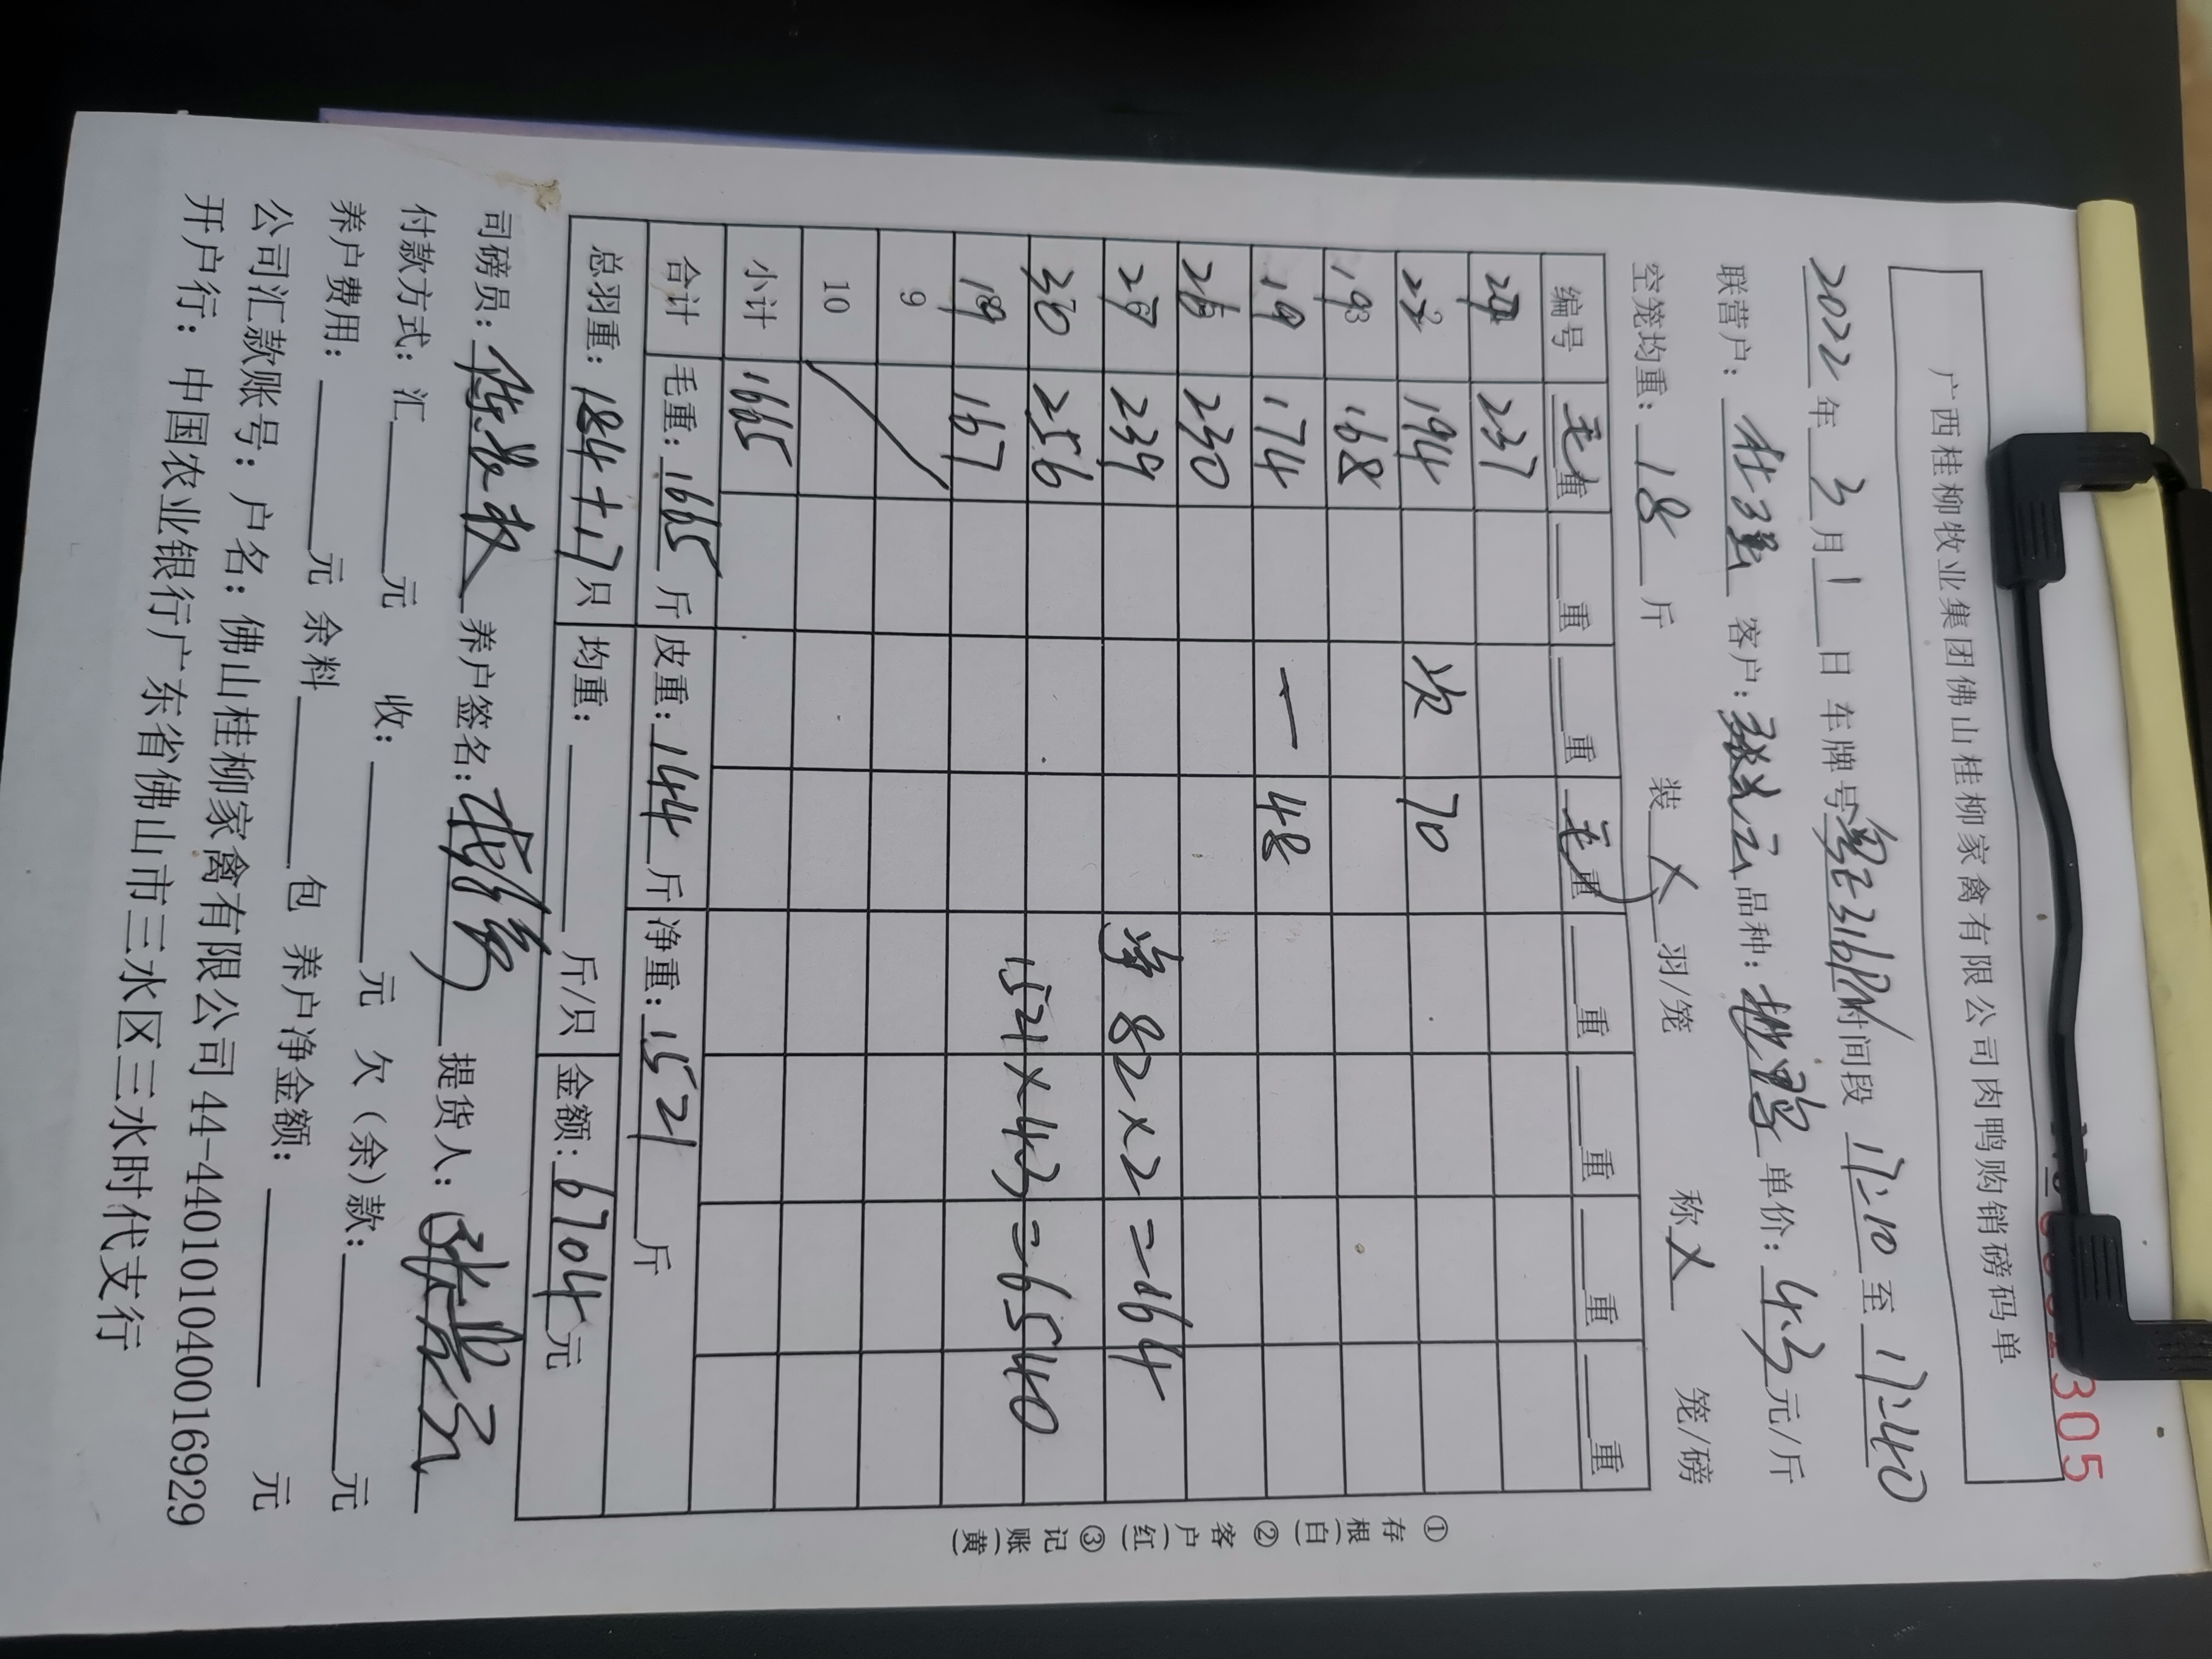 305
广西桂柳牧业集团佛山桂柳家禽有限公司肉鸭购销磅码单
2022年3月1日 车牌号粤E316 时间段 17:10 至 17:40
联营户： 客户： 品种： 单价：4.3元/斤
空笼均重：18斤 装 X 羽/笼 称 X 笼/磅
编号 毛重 重 重 毛重 重 重 重 重
237
194 次 70
193 168
19 174 一 48
230
239 净 82×2=164
30 256 1521×4.3=6540
189 167
9
10
小计 1665
合计 毛重：1665斤 皮重：144斤 净重：1521斤
总羽重：184+17只 均重： 斤/只 金额：6704元
司磅员： 养户签名： 提货人：
付款方式：汇 元 收： 元 欠（余）款： 元
养户费用： 元 余料 包 养户净金额： 元
公司汇款账号：户名：佛山桂柳家禽有限公司44-440101040016929
开户行：中国农业银行广东省佛山市三水区三水时代支行
①存根(白)②客户(红)③记账(黄)